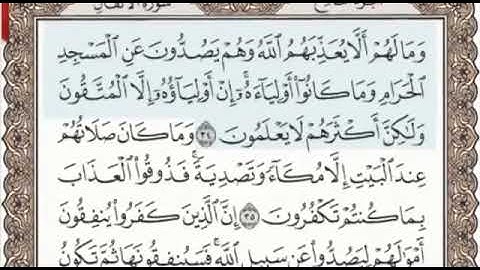 سورة الأنفال
وَمَا لَهُمْ أَلَّا يُعَذِّبَهُمُ اللَّهُ وَهُمْ يَصُدُّونَ عَنِ الْمَسْجِدِ
الْحَرَامِ وَمَا كَانُوا أَوْلِيَاءَهُ ۚ إِنْ أَوْلِيَاؤُهُ إِلَّا الْمُتَّقُونَ
وَلَٰكِنَّ أَكْثَرَهُمْ لَا يَعْلَمُونَ ٣٤ وَمَا كَانَ صَلَاتُهُمْ
عِنْدَ الْبَيْتِ إِلَّا مُكَاءً وَتَصْدِيَةً ۚ فَذُوقُوا الْعَذَابَ
بِمَا كُنْتُمْ تَكْفُرُونَ ٣٥ إِنَّ الَّذِينَ كَفَرُوا يُنْفِقُونَ
أَمْوَٰلَهُمْ لِيَصُدُّوا عَنْ سَبِيلِ اللَّهِ ۚ فَسَيُنْفِقُونَهَا ثُمَّ تَكُونُ